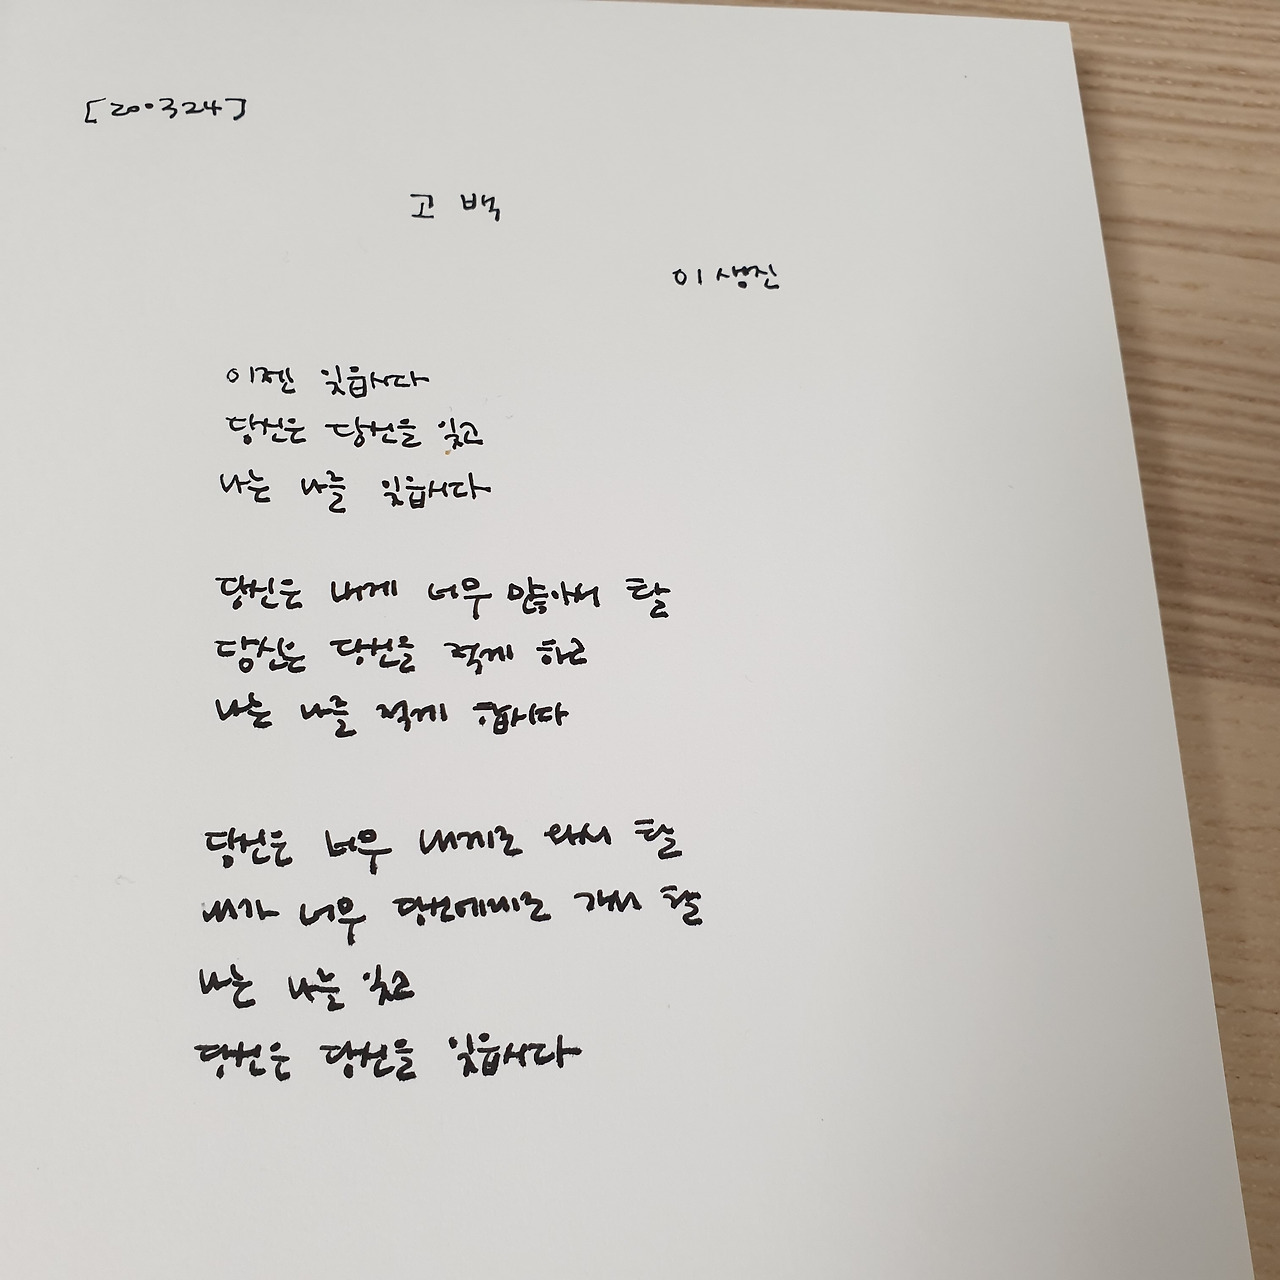 [200324]
고 백
이생진
이젠 잊읍시다
당신은 당신을 잊고
나는 나를 잊읍시다
당신은 내게 너무 많아서 탈
당신은 당신을 적게 하고
나는 나를 적게 합시다
당신은 너무 내게로 와서 탈
내가 너무 당신에게로 가서 탈
나는 나를 잊고
당신은 당신을 잊읍시다